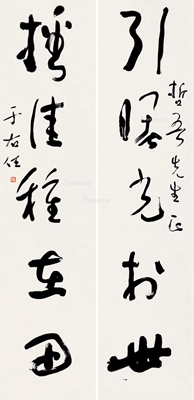 引曙光於世
哲吾先生正
播佳種在田
于右任